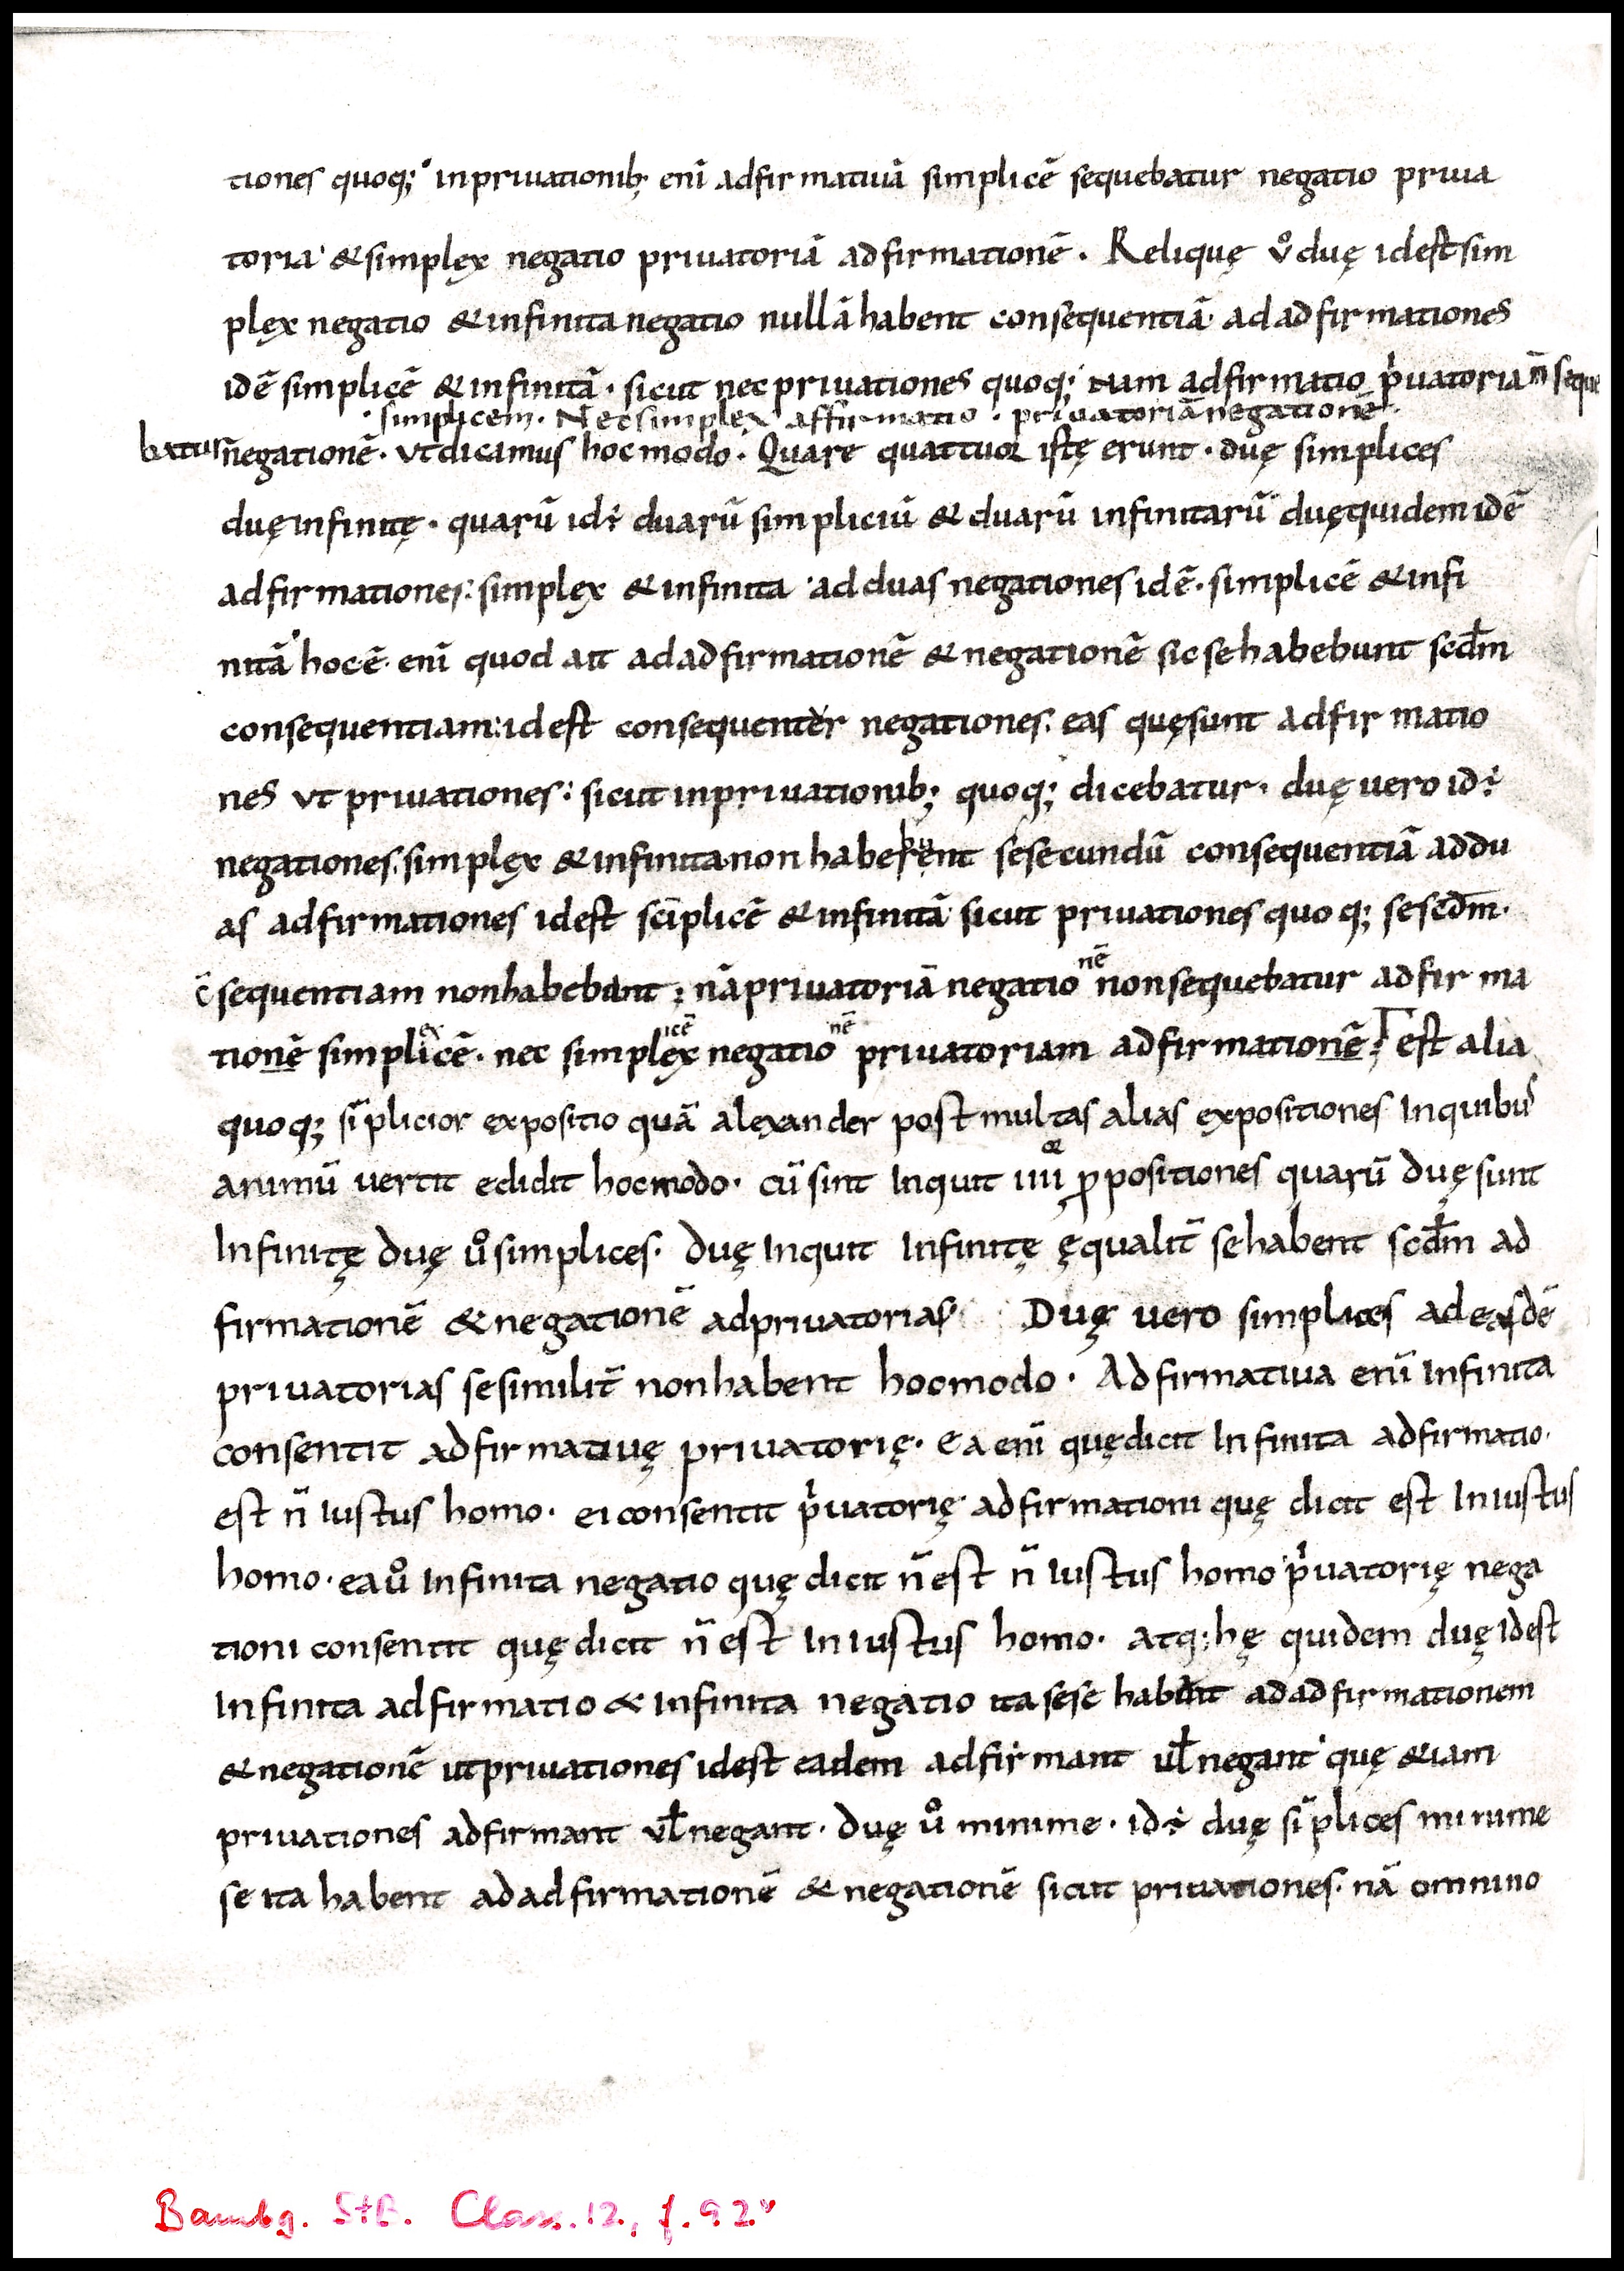 tiones quoq; inpriuationib; eni̅ adfirmatiua̅ simplice̅ sequebatur negatio priua
toria · &simplex negatio priuatoria̅ adfirmatione̅. Relique̜ v̊ due̜ idest sim
plex negatio &infinita negatio nulla̅ habent consequentia̅· adadfirmationes
ide̅ simplice̅ &infinita̅ · sicut nec priuationes quoq; nam adfirmatio p̓uatoria n̅ seque
· simplicem · Nec simplex affirmatio · priuatoria̅ negatione̅ ·
batur negatione̅ · vt dicamus hoc modo · Quare quattuor iste̜ erunt · due̜ simplices
due̜ infinite̜ · quaru̅ id÷ duaru̅ simpliciu̅ & duaru̅ infinitaru̅ due̜ quidem ide̅
adfirmationes: simplex &infinita ad duas negationes ide̅ · simplice̅ &infi
nita̅ hoc e̅ · eni̅ quod ait adadfirmatione̅ &negatione̅ sic se habebunt scd̅m
consequentiam: idest consequenter negationes: eas que̜ sunt adfirmatio
nes vt priuationes: sicut inpriuationib; quoq; dicebatur · due̜ uero id÷
negationes simplex &infinita non haberent se secundu̅ consequentia̅ ad du
as adfirmationes idest si̅plice̅ &infinita̅ sicut priuationes quoq; se scd̅m·
c̅sequentiam non habebant; na̅ priuatoria̅ negatio ne̅ non sequebatur adfirma
tione̅ simplice̅ ex · nec simplex ice̅ negatio ne̅ priuatoriam adfirmatione̅; est alia
quoq; si̅plicior expositio qua̅ alexander post multas alias expositiones Inquibus
animu̅ uertit edidit hocmodo · cu̅ sint Inquit iiii p̱positiones quaru̅ due̜ sunt
Infinite̜ due̜ ů simplices · due̜ Inquit Infinite̜ e̜qualit̅ se habent scd̅m ad
firmatione̅ &negatione̅ adpriuatorias Due̜ uero simplices ad easde̅
priuatorias se similit̅ non habent hocmodo · Adfirmatiua eni̅ Infinita
consentit adfirmatiue̜ priuatorie̜ · ea eni̅ que̜ dicit Infinita adfirmatio·
est n̅ Iustus homo · ei consentit p̓uatorie̜ adfirmationi que̜ dicit est Iniustus
homo · ea ů Infinita negatio que̜ dicit n̅ est n̅ Iustus homo p̓uatorie̜ nega
tioni consentit que̜ dicit n̅ est Iniustus homo · atq; he̜ quidem due̜ Idest
Infinita adfirmatio & Infinita negatio ita sese habent adadfirmationem
&negatione̅ ut priuationes idest eadem adfirmant ul̅ negant que̜ &iam
priuationes adfirmant vl̅ negant · due̜ ů minime · id÷ due̜ si̅plices minime
se ita habent adadfirmatione̅ &negatione̅ sicut priuationes · na̅ omnino
Bambg. StB. Class. 12., f. 92v